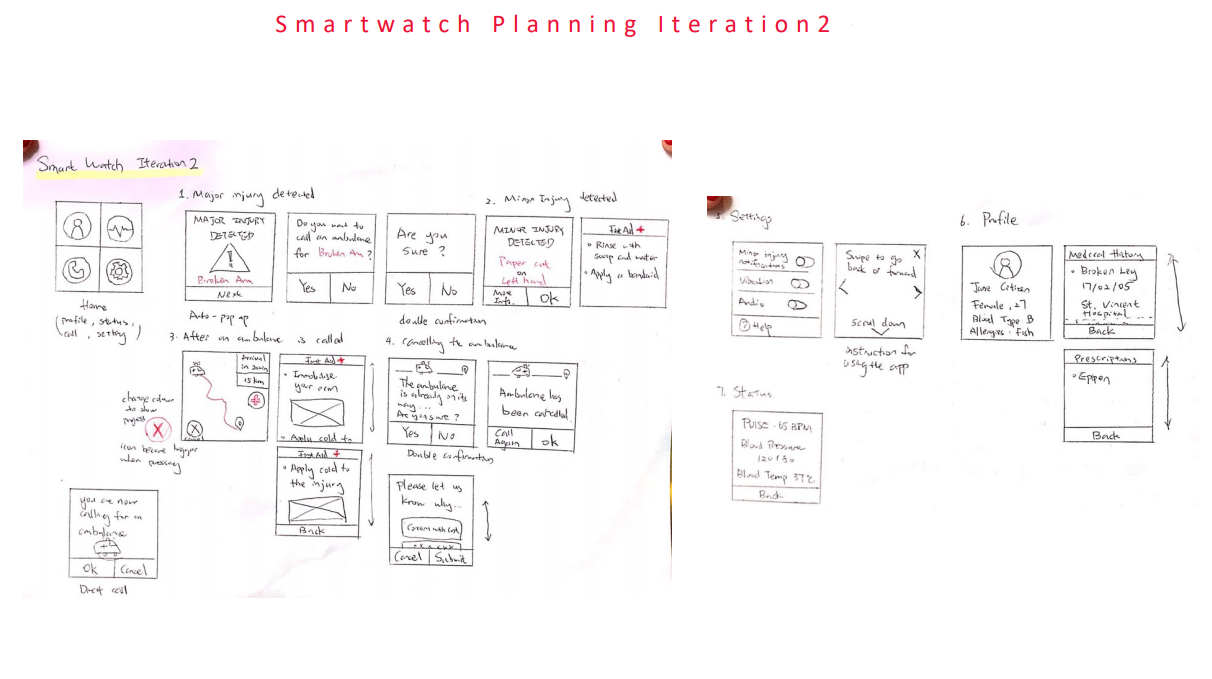 Smartwatch Planning Iteration2
Smart Watch Iteration 2
1. Major injury detected
MAJOR INJURY
DETECTED
Broken Arm
Next
Auto-pop up
Do you want to
call an ambulance
for Broken Arm?
Yes No
Are you
sure?
Yes No
double confirmation
2. Minor Injury detected
MINOR INJURY
DETECTED
Paper cut
on
Left hand
More
Info. Ok
First Aid +
• Rinse with
soap and water
• Apply a bandaid
Home
(profile, status,
call, setting)
3. After an ambulance is called
Arrival
in
15 km
change colour
to show
progress
X
icon become bigger
when pressing
X
First Aid +
• Immobilise
your arm
• Apply cold to
First Aid +
• Apply cold to
the injury
Back
4. Cancelling the ambulance
The ambulance
is already on its
way...
Are you sure?
Yes No
Double confirmation
Ambulance has
been cancelled
Call
Again Ok
Please let us
know why...
Cancel Submit
you are now
calling for an
ambulance
Ok Cancel
Direct call
5. Settings
Minor injury
notifications
Vibration
Audio
? Help
Swipe to go X
back or forward
< >
Scroll down
instruction for
using the app
6. Profile
Jane Citizen
Female, 27
Blood Type B
Allergies: fish
Medical History
• Broken Leg
17/02/05
St. Vincent
Hospital
Back
Prescriptions
• Epipen
Back
7. Status
Pulse - 65 BPM
Blood Pressure
Blood Temp 37°C
Back